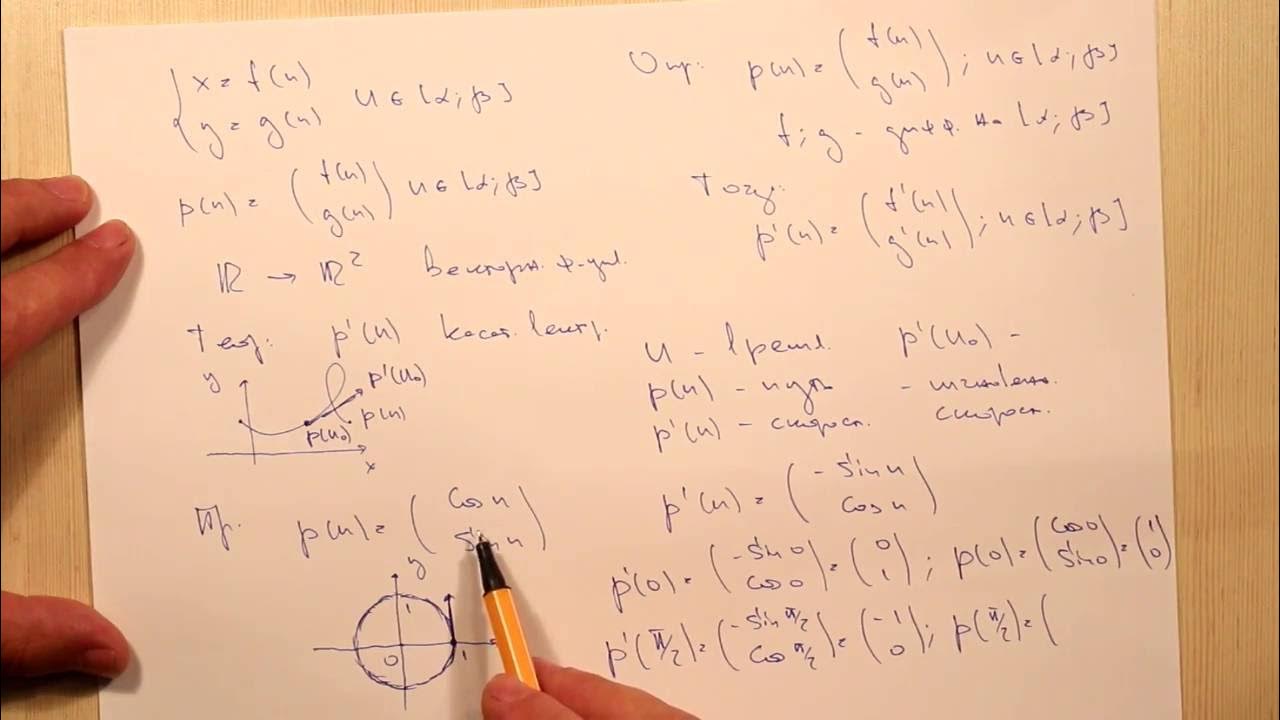 { x = f(u)
y = g(u) u ∈ [α; β]
p(u) = ( f(u)
g(u) ) u ∈ [α; β]
ℝ → ℝ² векторн. ф-ция.
Теор: p'(u) касат. вект.
y
p'(u₀)
p(u)
p(u₀)
x
Пр. p(u) = ( cos u
sin u )
y
1
0 1
Опр: p(u) = ( f(u)
g(u) ) ; u ∈ [α; β]
f; g - дифф. на [α; β]
Тогд:
p'(u) = ( f'(u)
g'(u) ) ; u ∈ [α; β]
u - врем. p'(u₀) -
p(u) - путь - мгновенн.
p'(u) - скорост. скорост.
p'(u) = ( - sin u
cos u )
p'(0) = ( - sin 0
cos 0 ) = ( 0
1 ) ; p(0) = ( cos 0
sin 0 ) = ( 1
0 )
p'(π/2) = ( - sin π/2
cos π/2 ) = ( - 1
0 ) ; p(π/2) = (